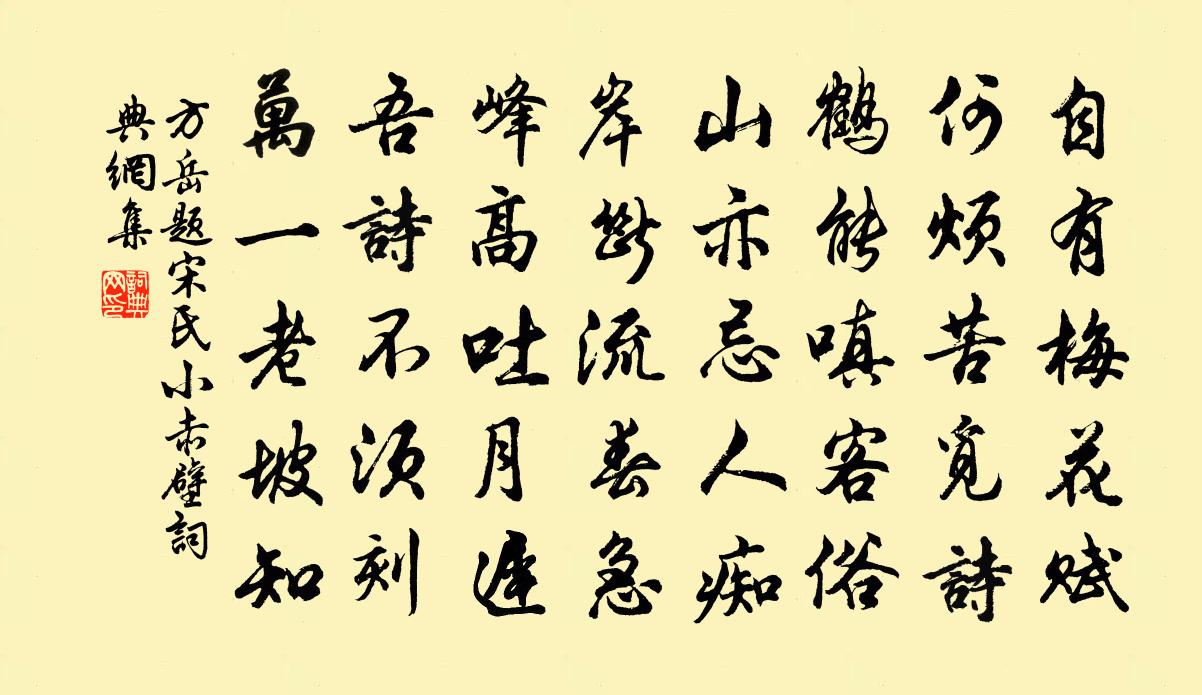 自有梅花賦
何煩苦覓詩
鶴能嗔客俗
山亦忌人痴
岸斷流春急
峰高吐月遲
吾詩不須刻
萬一老坡知
方岳題宋氏小赤壁詞
典網集
詞典網印